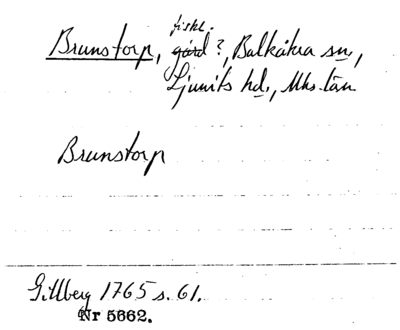 fiskl.
Brunstorp, gård?, Balkåkra sn,
Ljunits hd., Mhs. län
Brunstorp
Gillberg 1765 s. 61.
Nr 5662.